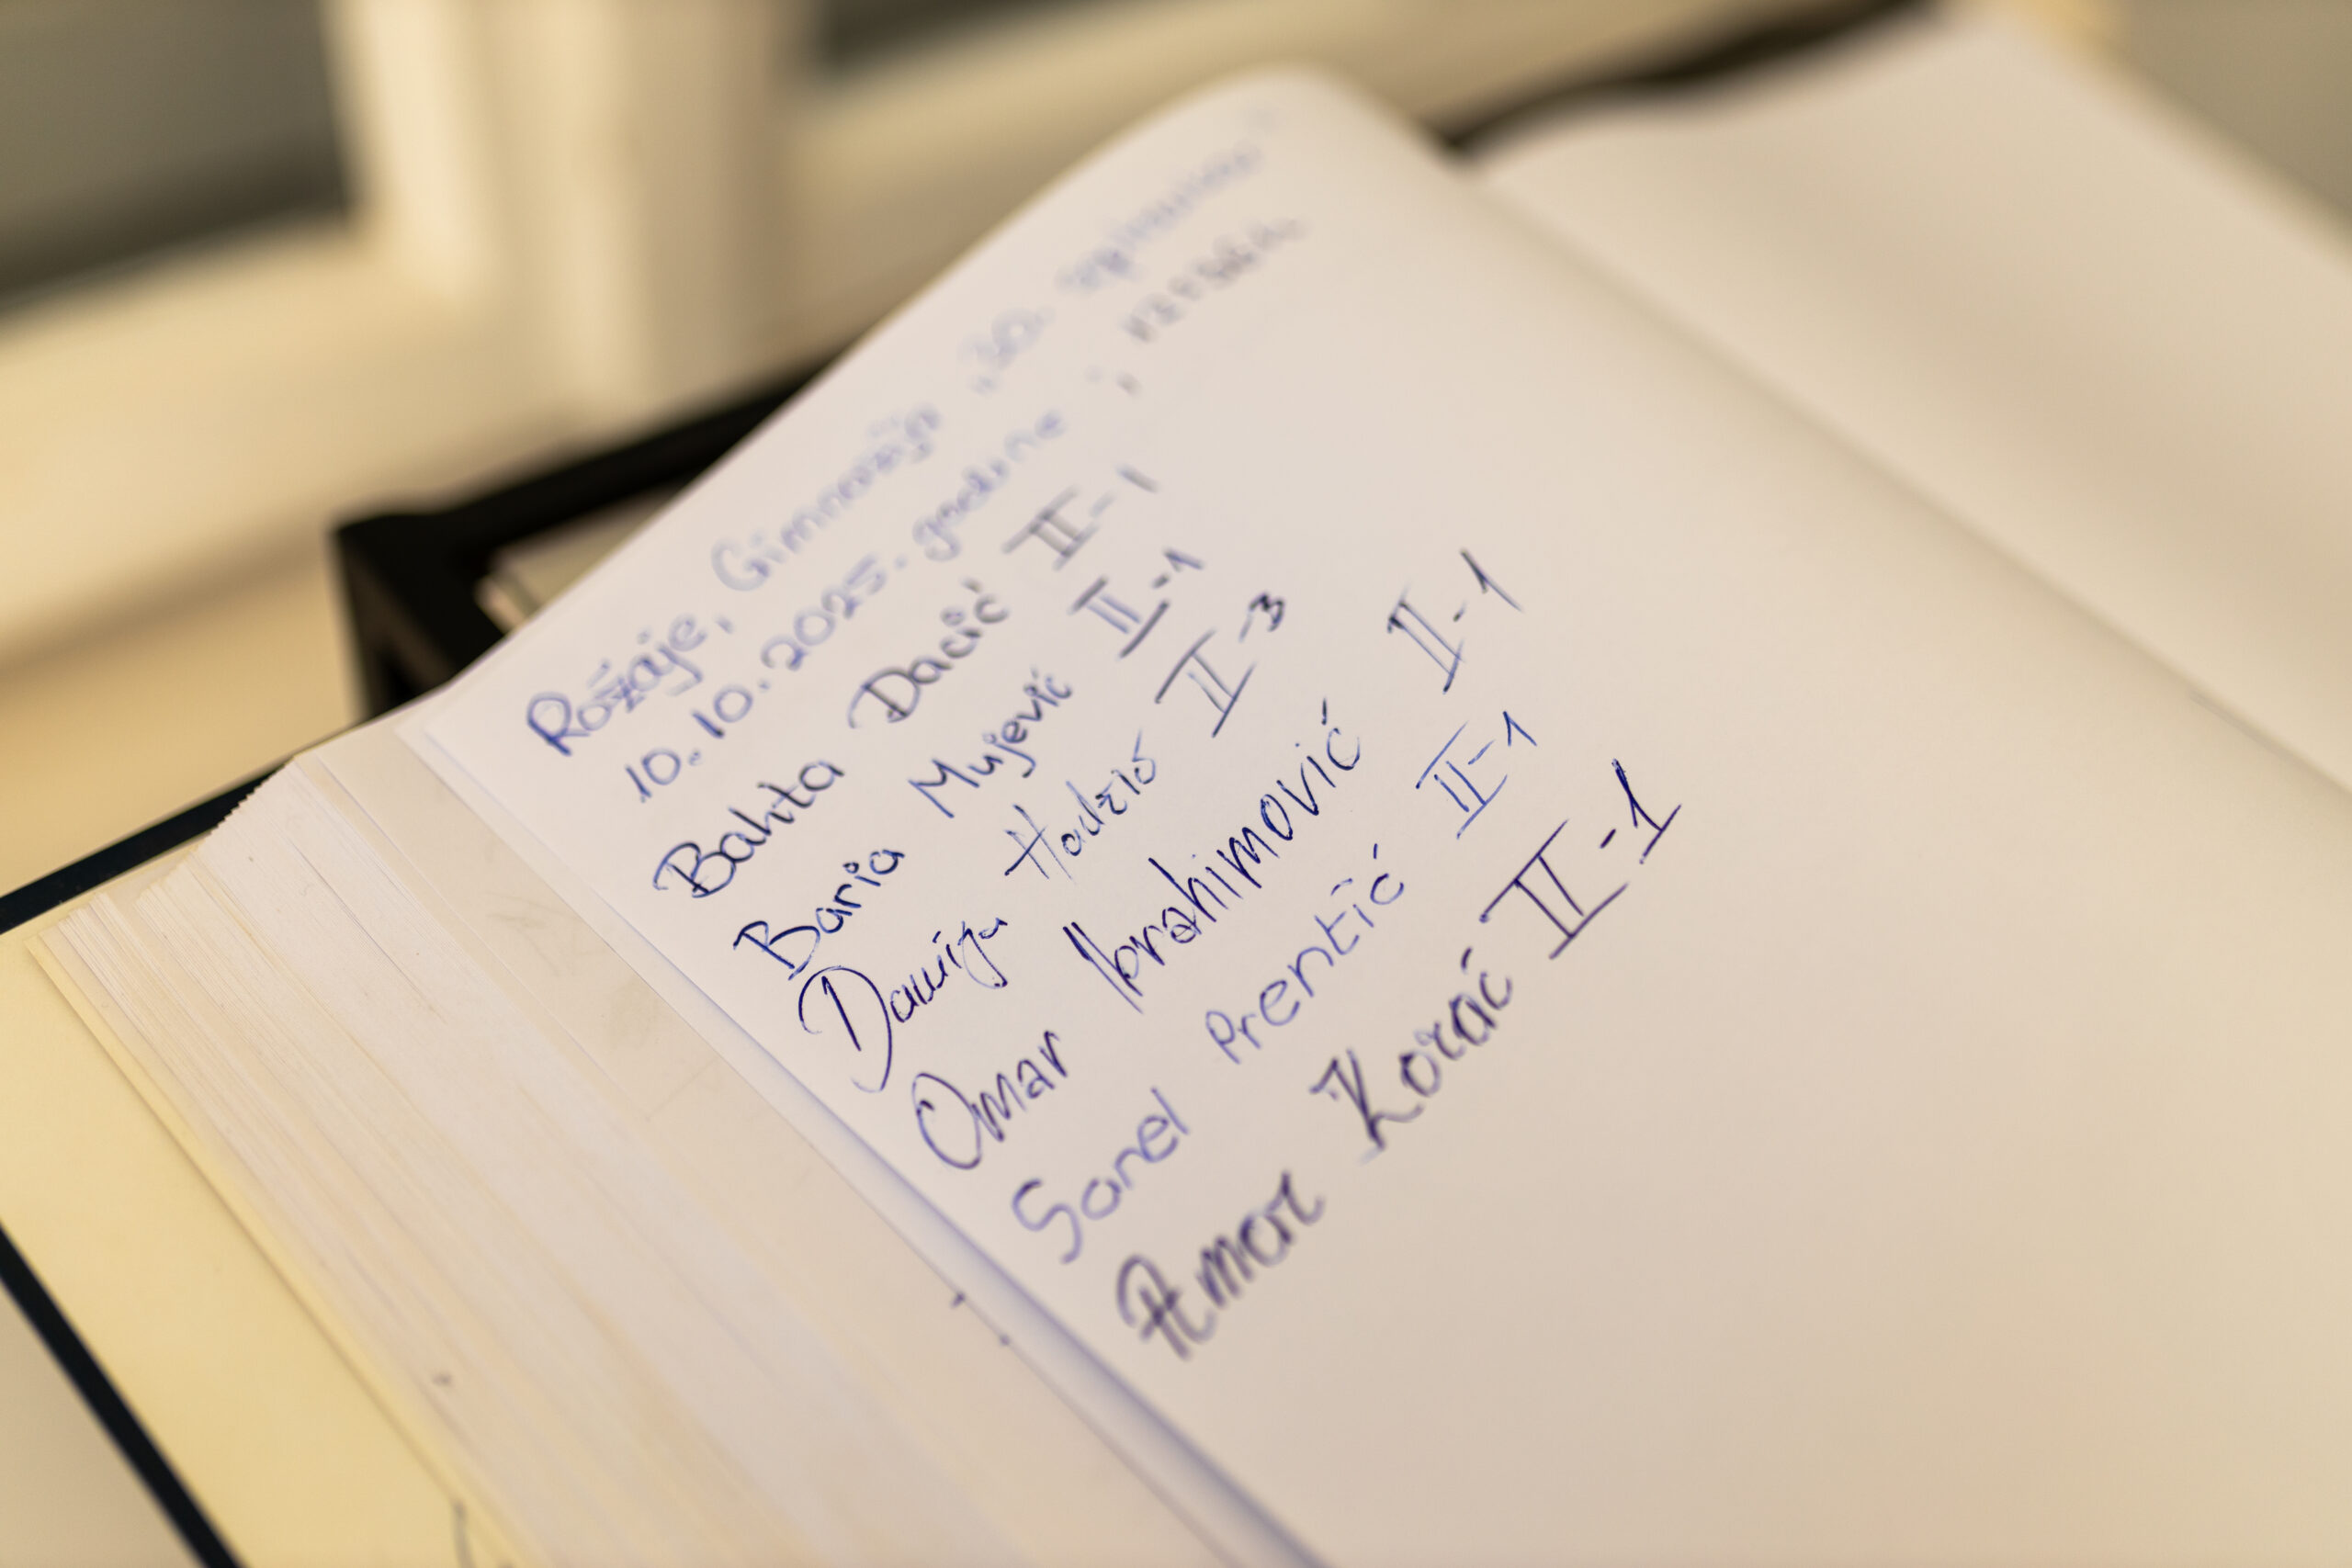 Rožaje, Gimnazija „30. septembar"
10.10.2025. godine,
Bahta Dacić II-1
Baria Mujević II-1
Damija Hodžić II-3
Omar Ibrahimović II-1
Sanel Prentić II-1
Amar Korać II-1